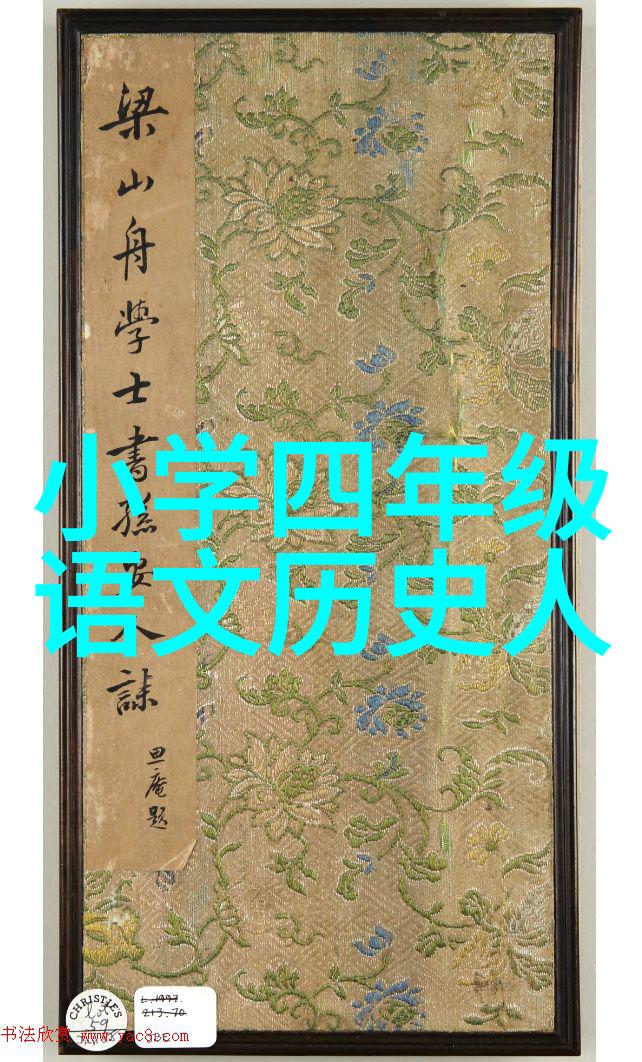 梁山舟学士書孫安人誄
思庵题
小学四年级
语文历史人
CHRISTIE'S
Lot
59
L.1997.
213.70
书法欣赏 www.yac8.com